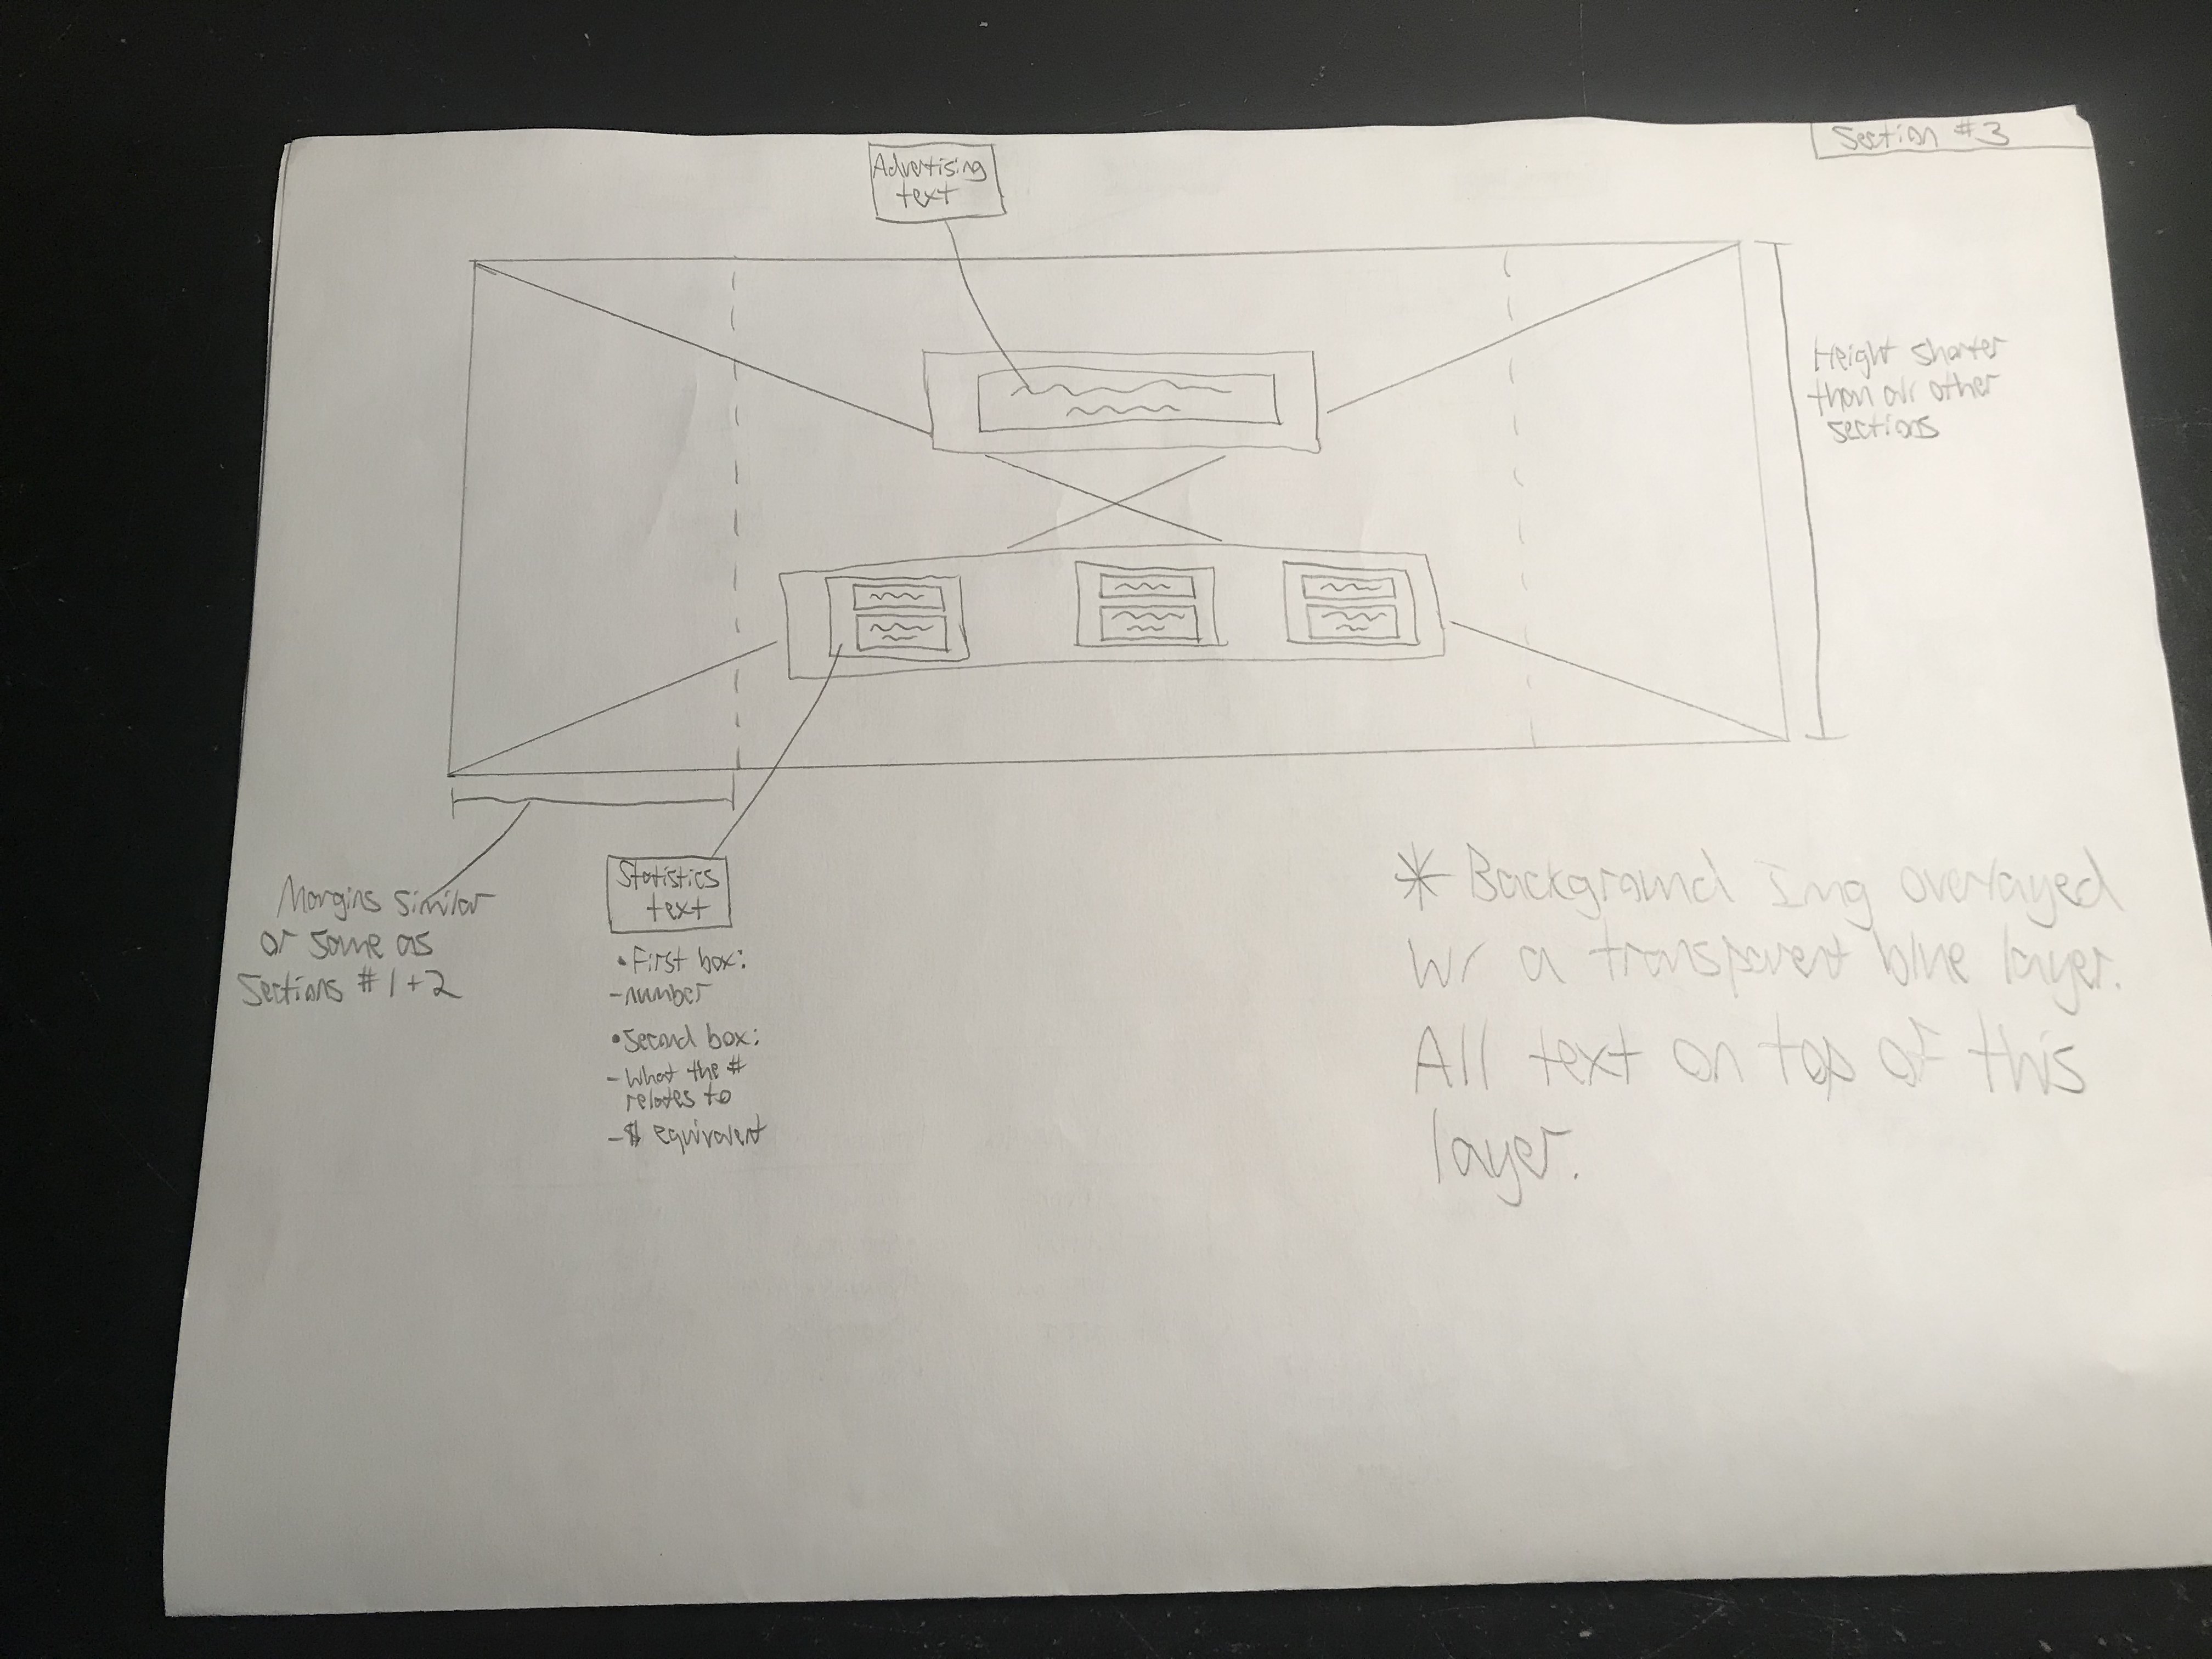 Section #3
Advertising
text
Height shorter
than all other
sections
Margins similar
or same as
Sections #1+2
Statistics
text
• First box:
- number
• Second box:
- What the #
relates to
- $ equivalent
* Background Img overlayed
w/ a transparent blue layer.
All text on top of this
layer.